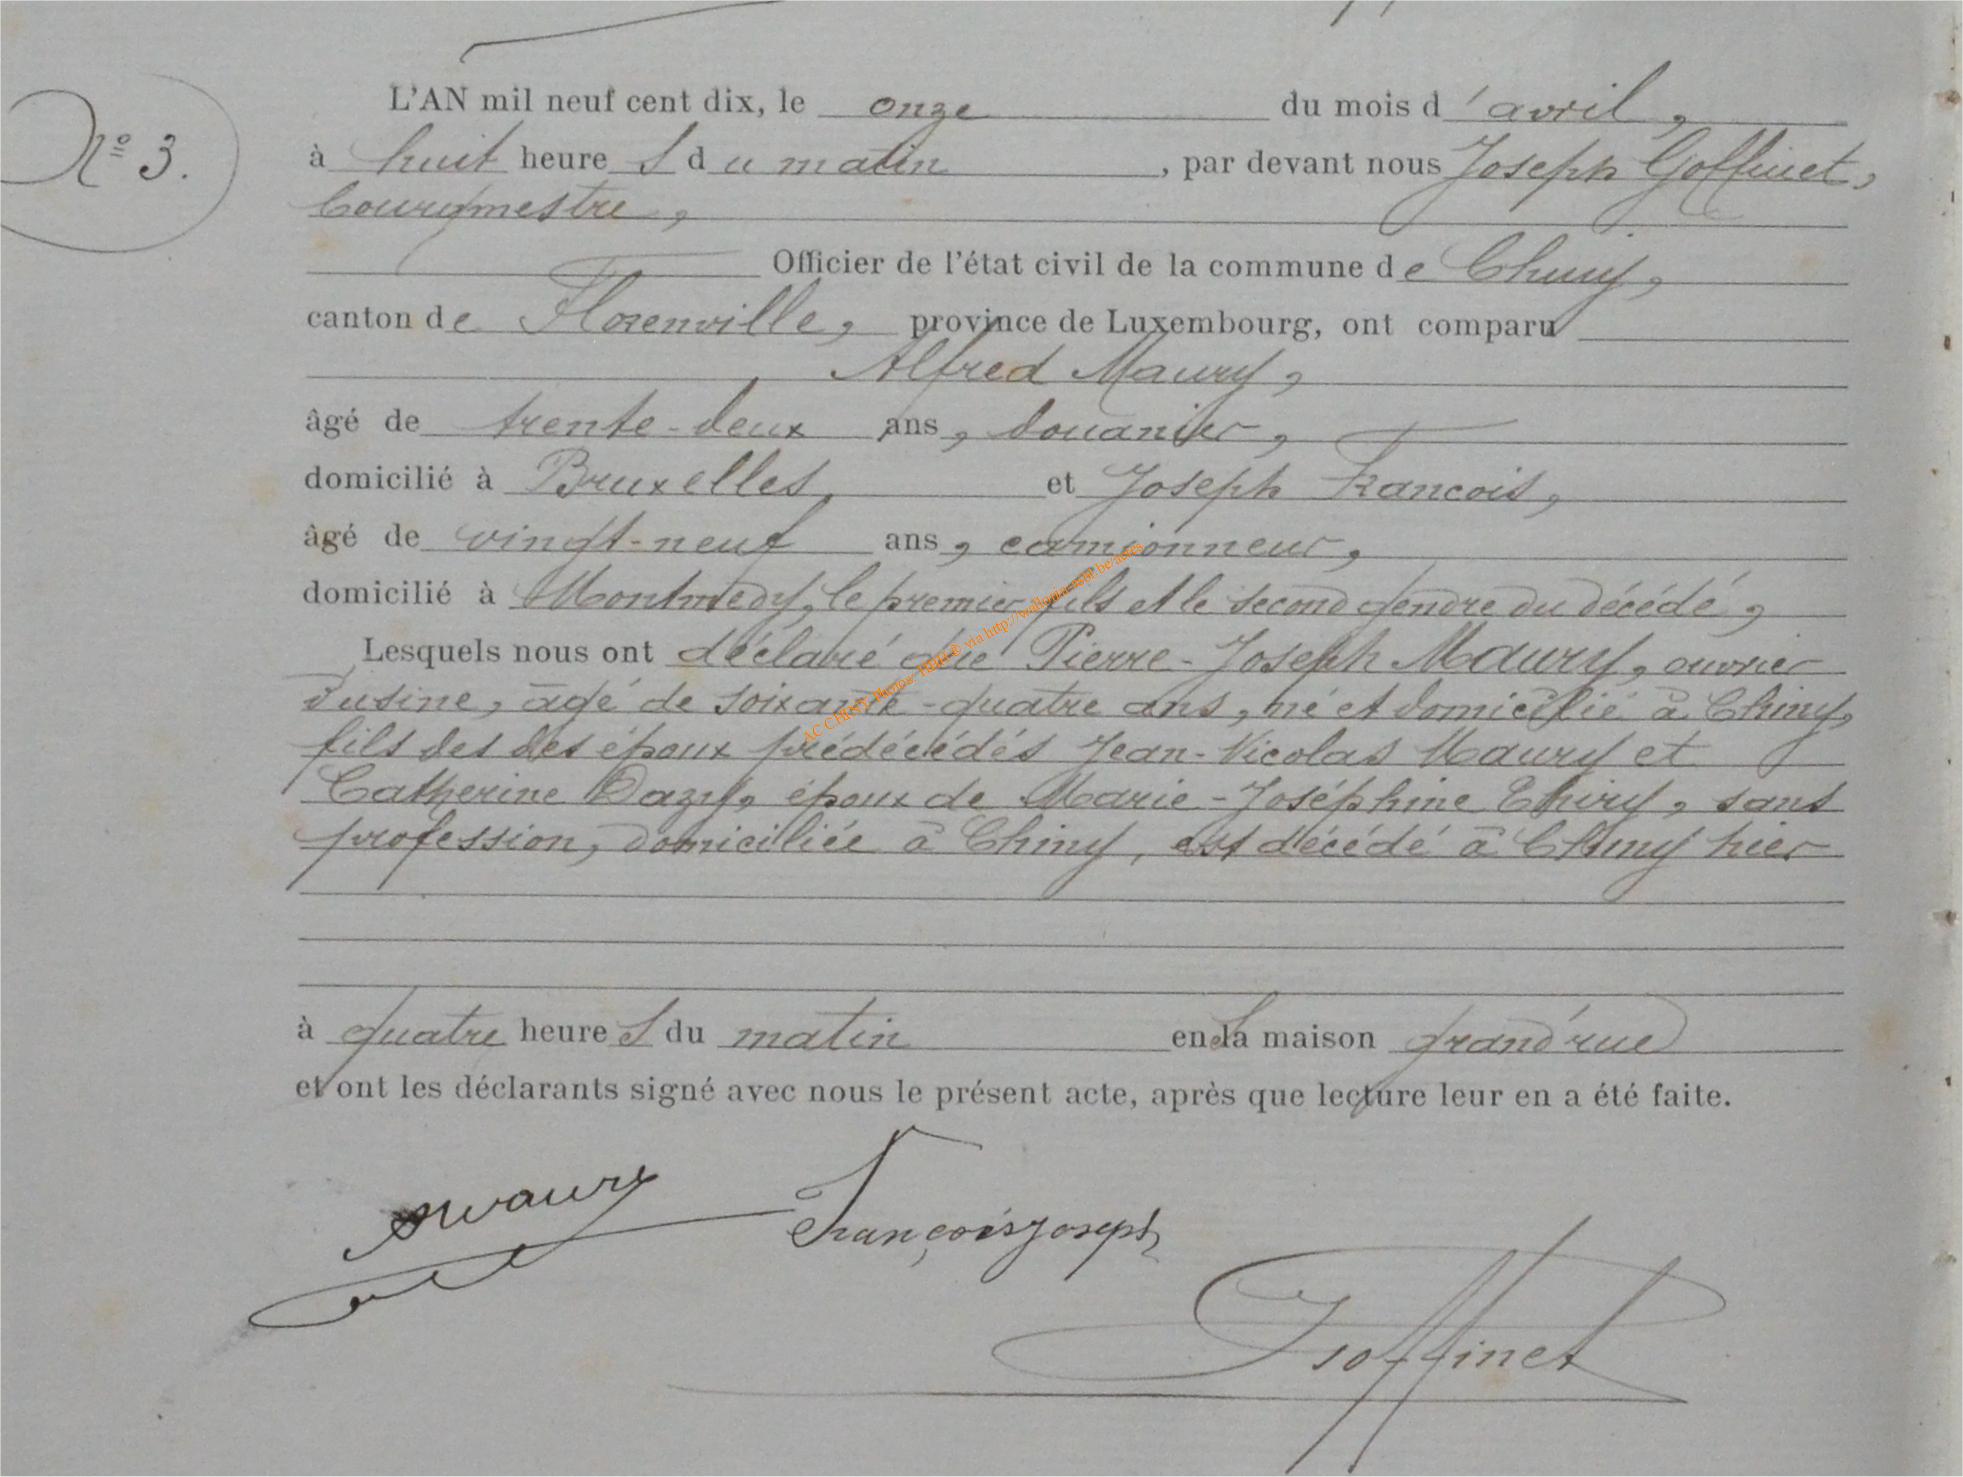 L'AN mil neuf cent dix, le onze du mois d'avril,
N° 3.
à huit heures du matin, par devant nous Joseph Goffinet,
bourgmestre,
Officier de l'état civil de la commune de Chiny,
canton de Florenville, province de Luxembourg, ont comparu
Alfred Maury,
âgé de trente-deux ans, douanier,
domicilié à Bruxelles, et Joseph Francois,
âgé de vingt-neuf ans, camionneur,
domicilié à Montmedy, le premier fils et le second gendre du décédé,
Lesquels nous ont déclaré que Pierre-Joseph Maury, ouvrier
d'usine, âgé de soixante-quatre ans, né et domicilié à Chiny,
fils des des époux prédécédés Jean-Nicolas Maury et
Catherine Dazy, époux de Marie-Joséphine Thiry, sans
profession, domiciliée à Chiny, est décédé à Chiny hier
à quatre heures du matin en sa maison grand'rue
et ont les déclarants signé avec nous le présent acte, après que lecture leur en a été faite.
AMaury
François Joseph
J Goffinet
AC CHINY Photos: via http://wallonia-asbl.be/actes